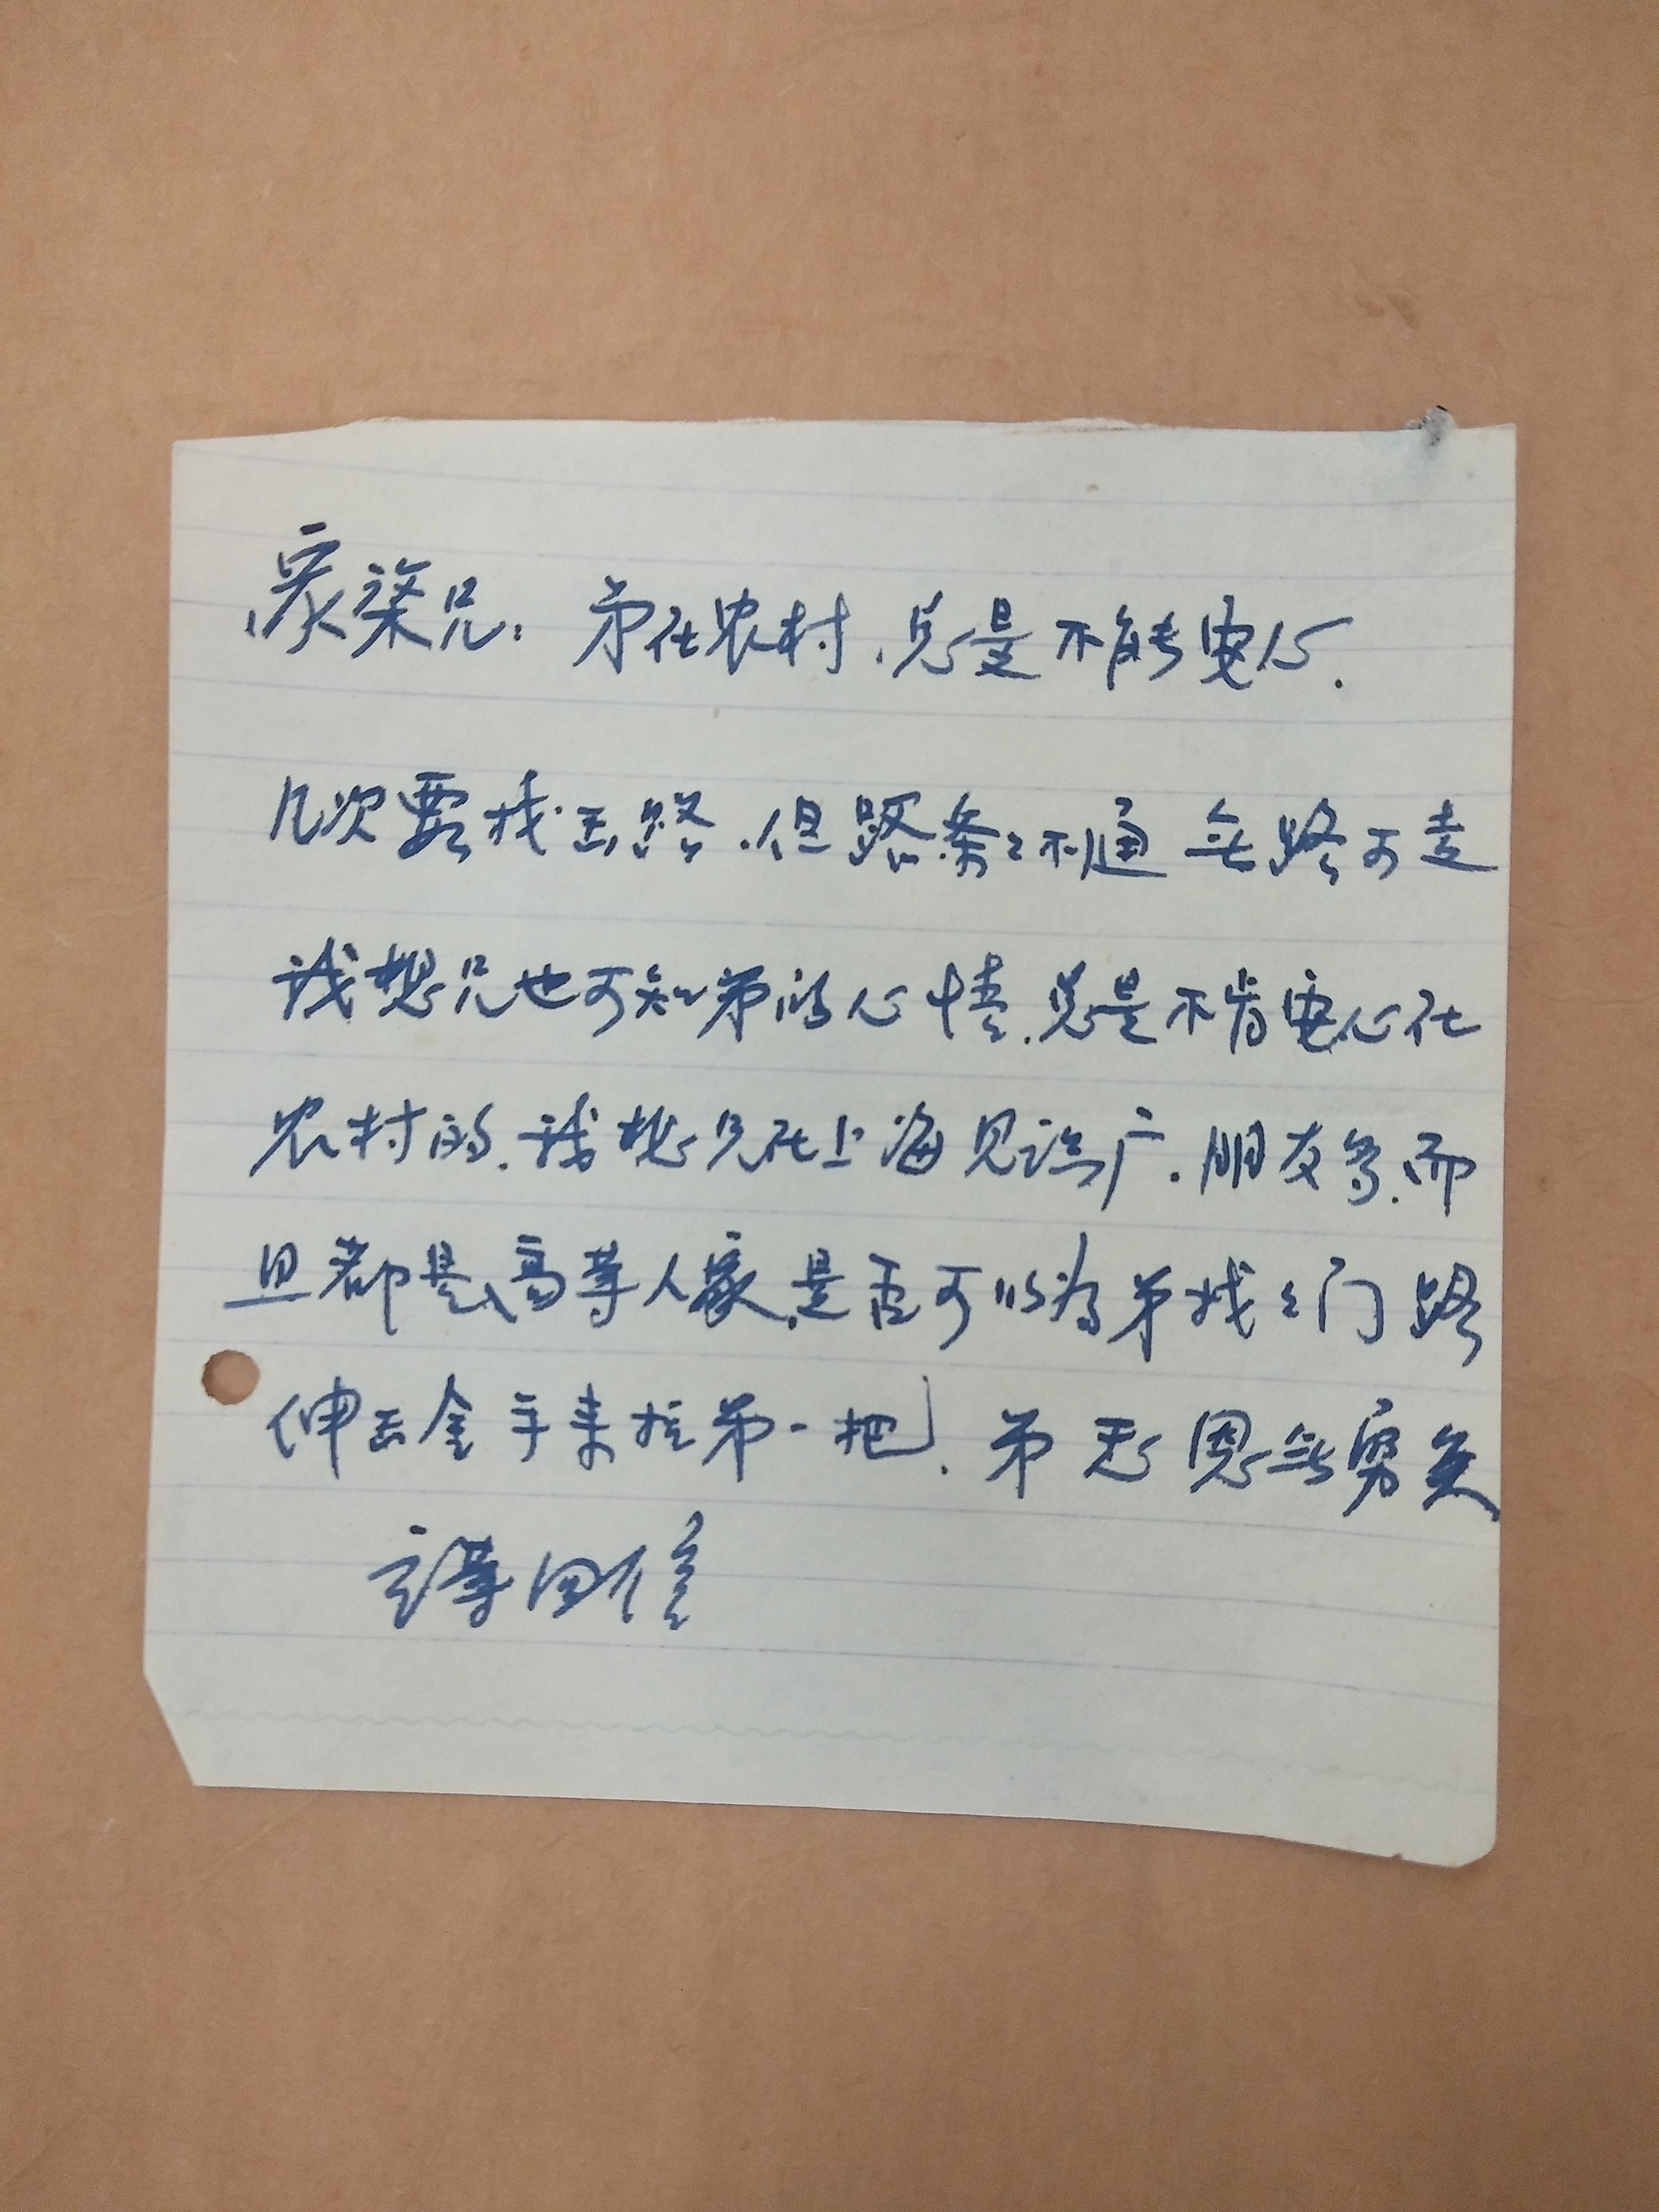 家荣兄：弟在农村，总是不能安心.
几次要找出路.但路条々不通 无路可走
我想兄也可知弟的心情.总是不肯安心在
农村的.我想兄在上海见识广.朋友多.而
且都是高等人家.是否可以为弟找々门路
伸出金手来拉弟一把.弟恩无穷矣
立等回信